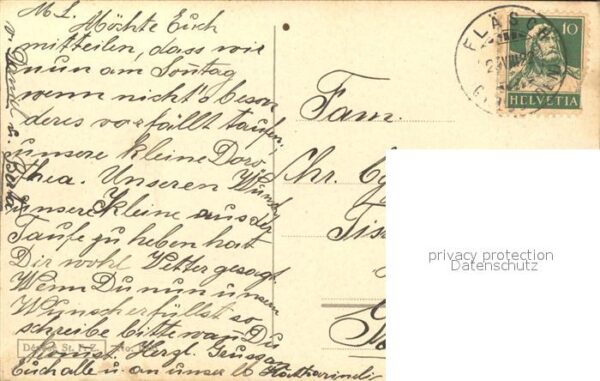 M. L. Möchte Euch
mitteilen, dass wir
nun am Sonntag
wenn nicht's beson
deres vorfällt taufen.
unsere kleine Doro
thea. Unseren Wunsch
unsere Kleine aus der
Taufe zu heben hat
Dir wohl Vetter gesagt.
Wenn Du nun unsern
Wunsch erfüllst so
schreibe bitte wann Du
kommst. Herzl. Grüsse an
Euch alle u. an unser lb
Fam.
Chr.
FLÄSCH
10
HELVETIA
privacy protection
Datenschutz